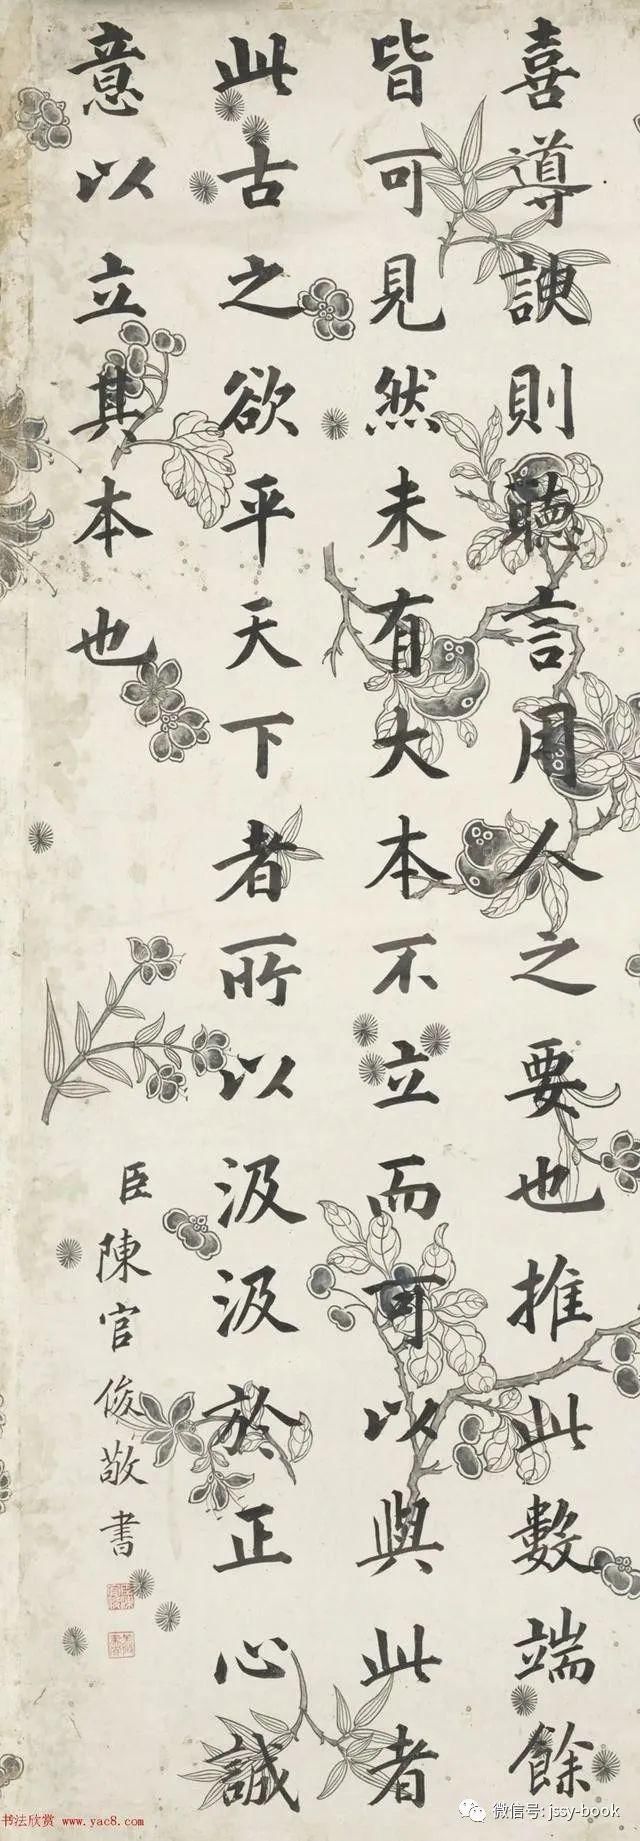 喜導諛則聽言用人之要也推此數端餘
皆可見然未有大本不立而可以與此者
此古之欲平天下者所以汲汲於正心誠
意以立其本也
臣陳官俊敬書
书法欣赏 www.yac8.com
微信号: jssy-book